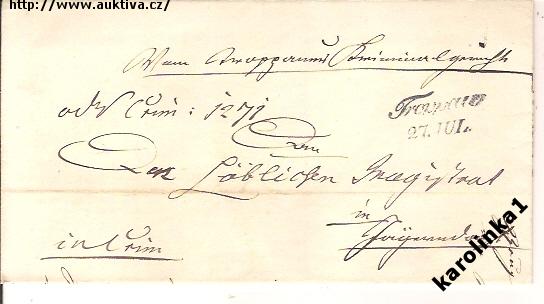 http://www.auktiva.cz/
Vom Troppauer Kriminalgericht
Crim: 1271
Troppau
27. JUL.
An
Den Löblichen Magistrat
in
in Crim
Jägerndorf
karolinka1